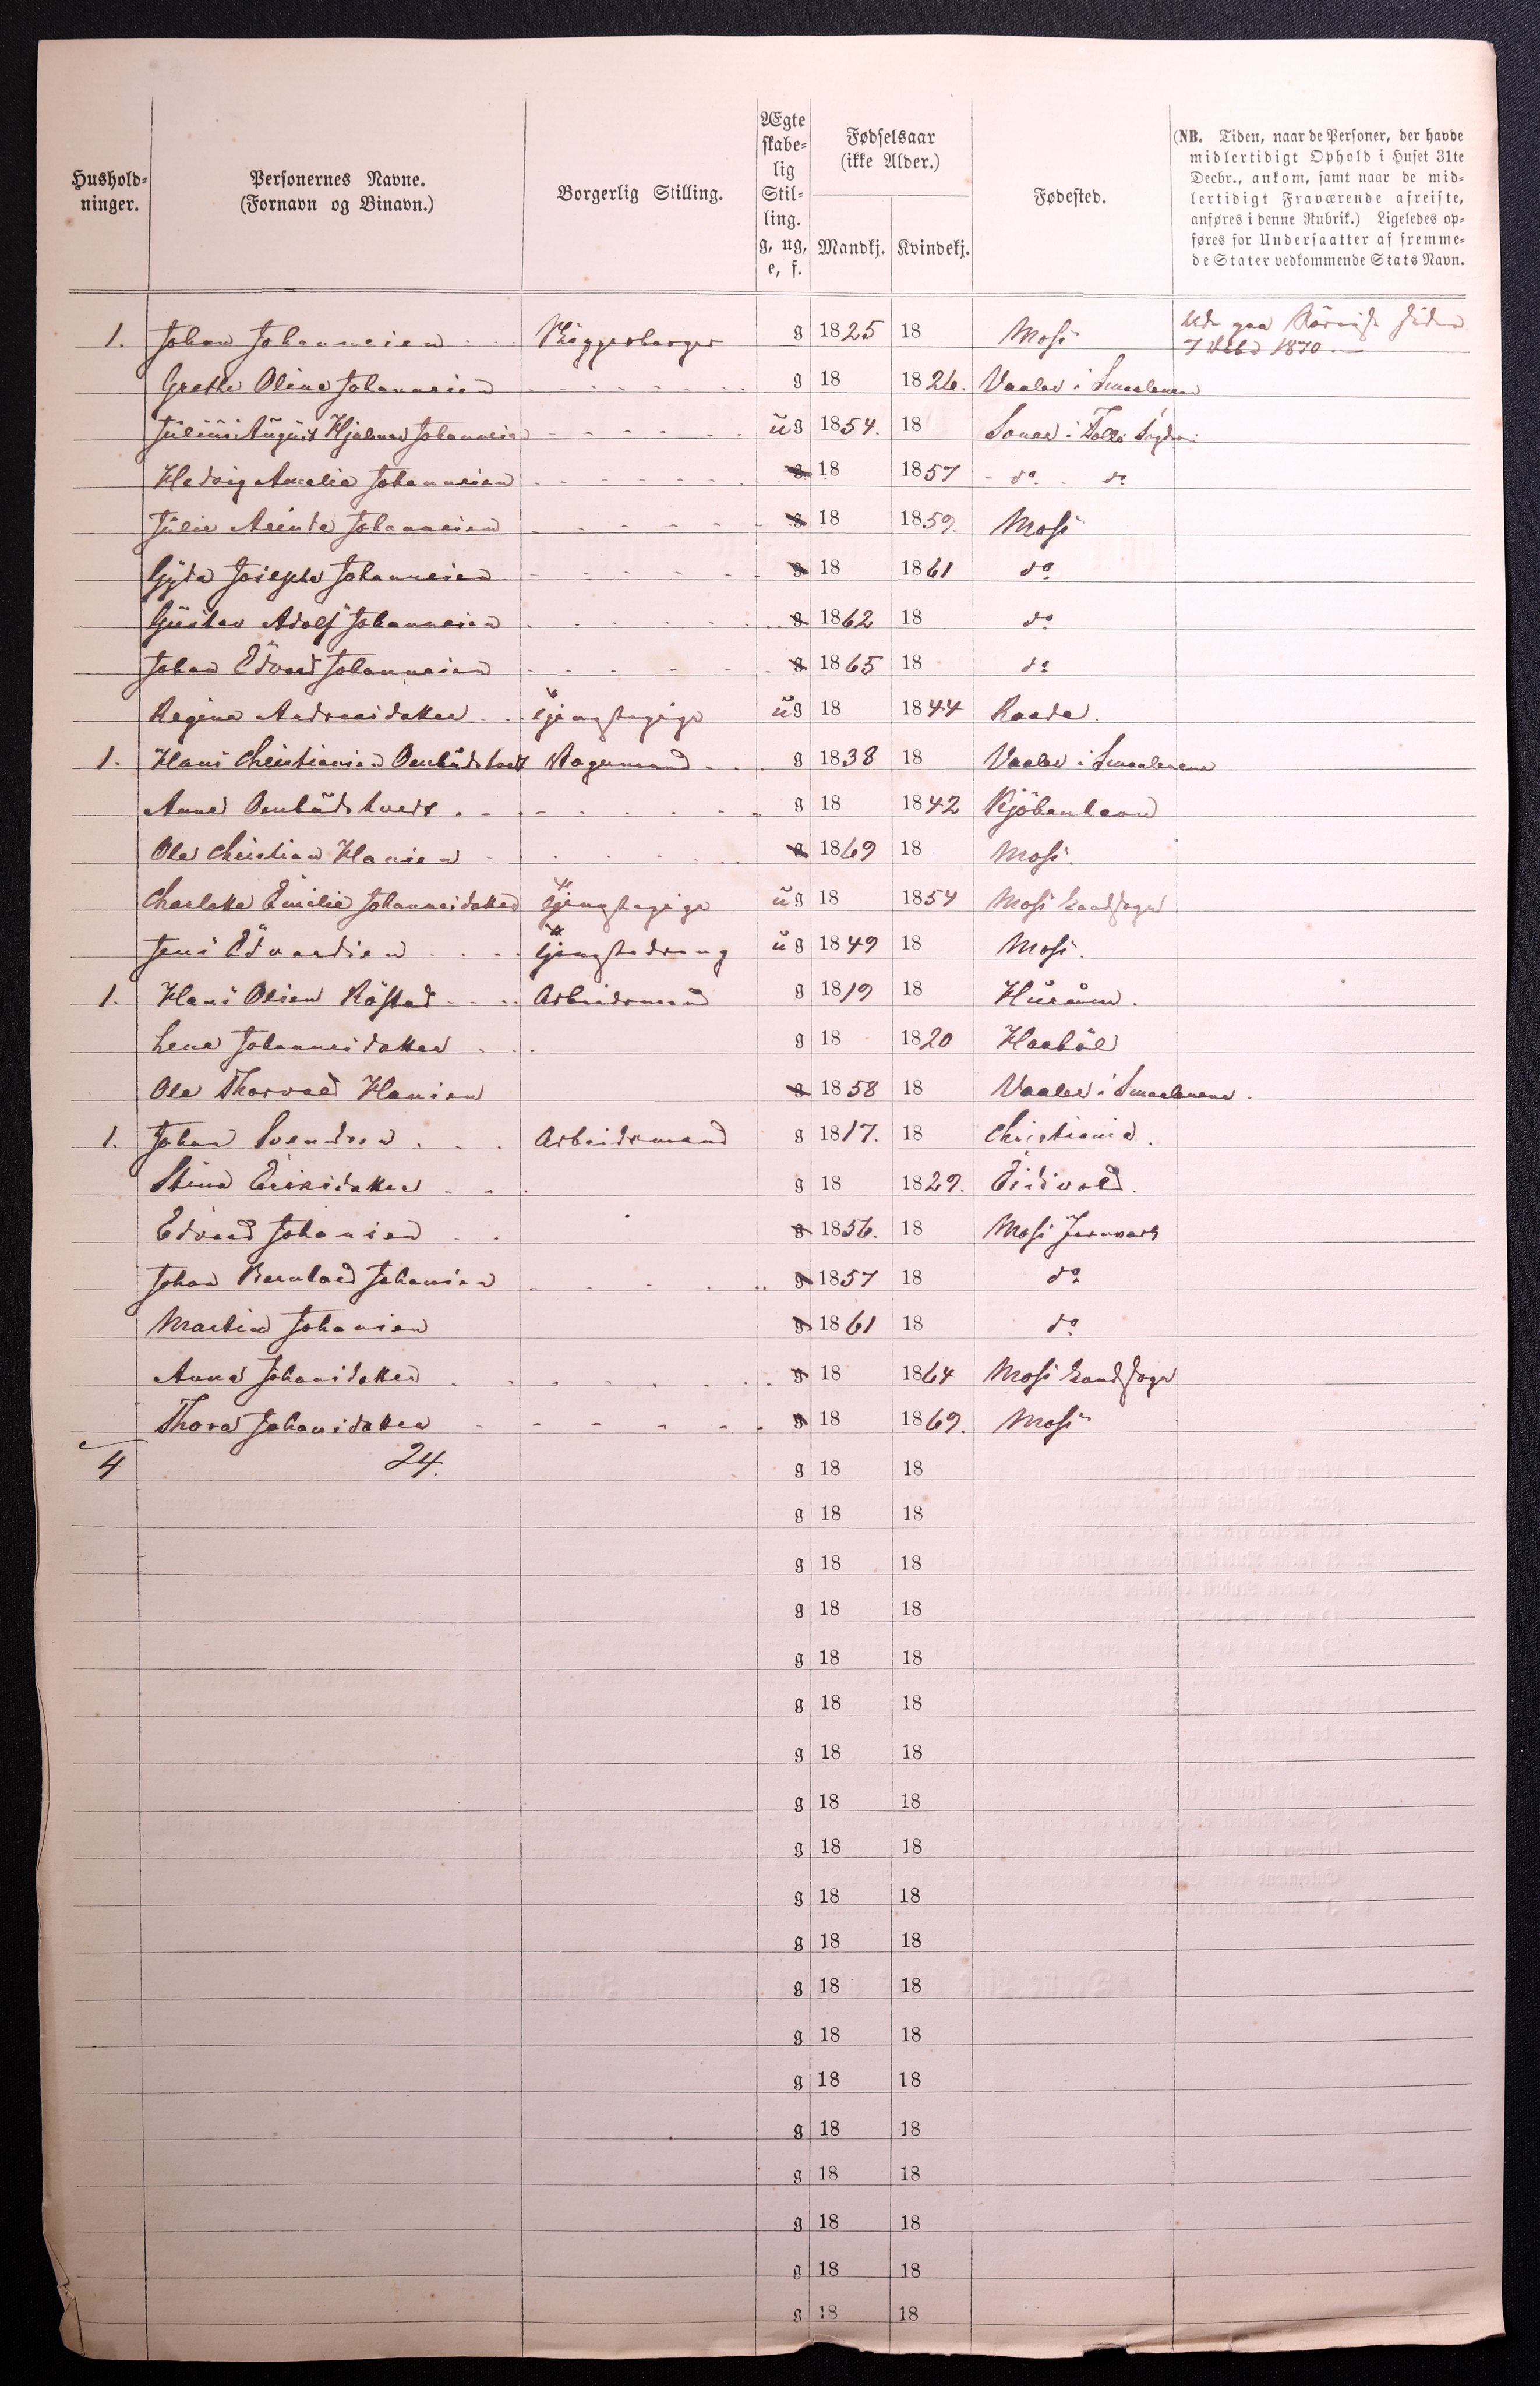 Hushold-
ninger.
Personernes Navne.
(Fornavn og Binavn.)
Borgerlig Stilling.
Ægte
skabe-
lig
Stil-
ling.
g, ug,
e, f.
Fødselsaar
(ikke Alder.)
Mandkj. Kvindekj.
Fødested.
(NB. Tiden, naar de Personer, der havde
midlertidigt Ophold i Huset 31te
Decbr., ankom, samt naar de mid-
lertidigt Fraværende afreiste,
anføres i denne Rubrik.) Ligeledes op-
føres for Undersaatter af fremme-
de Stater vedkommende Stats Navn.
1. Johan Johannesen g 1825 18 Moss Ude paa siden
7 1870
Grethe Oline Johannesen g 18 1826. Vaaler i Smaalenene
Julius August Hjalmar Johannesen ug 1854. 18 Soner i Follo
Hedvig Amelia Johannesen g 18 1857 do. do
Julie Johannesen g 18 1859. Moss
Gyda Josepha Johannesen g 18 1861 do
Gustav Adolf Johannesen g 1862 18 do
Johan Edvard Johannesen g 1865 18 do
Regine Andreasdatter Tjenestepige ug 18 1844 Raade.
1. Hans Christiansen Ombudstvedt Vognmand g 1838 18 Vaaler i Smaalenene
Anne Ombudstvedt g 18 1842 Kjöbenhavn
Ole Christian Hansen g 1869 18 Moss.
Charlotte Emilie Johannesdatter Tjenestepige ug 18 1854 Moss Landsogn
Jens Edvardsen Tjenestedreng ug 1849 18 Moss.
1. Hans Olsen Röstad Arbeidsmand g 1819 18 Hurum.
Lene Johannesdatter g 18 1820 Haaböl
Ole Thorvald Hansen g 1858 18 Vaaler i Smaalenene.
1. Johan Svendsen Arbeidsmand g 1817. 18 Christiania.
Stina Eriksdatter g 18 1829. Eidsvold.
Edvard Johansen g 1856. 18 Moss Jernværk
Johan Bernhard Johansen g 1857 18 do
Martin Johansen g 1861 18 do
Anna Johansdatter g 18 1864 Moss Landsogn
Thora Johansdatter g 18 1869. Moss
4 24. g 18 18
g 18 18
g 18 18
g 18 18
g 18 18
g 18 18
g 18 18
g 18 18
g 18 18
g 18 18
g 18 18
g 18 18
g 18 18
g 18 18
g 18 18
g 18 18
g 18 18
g 18 18
g 18 18